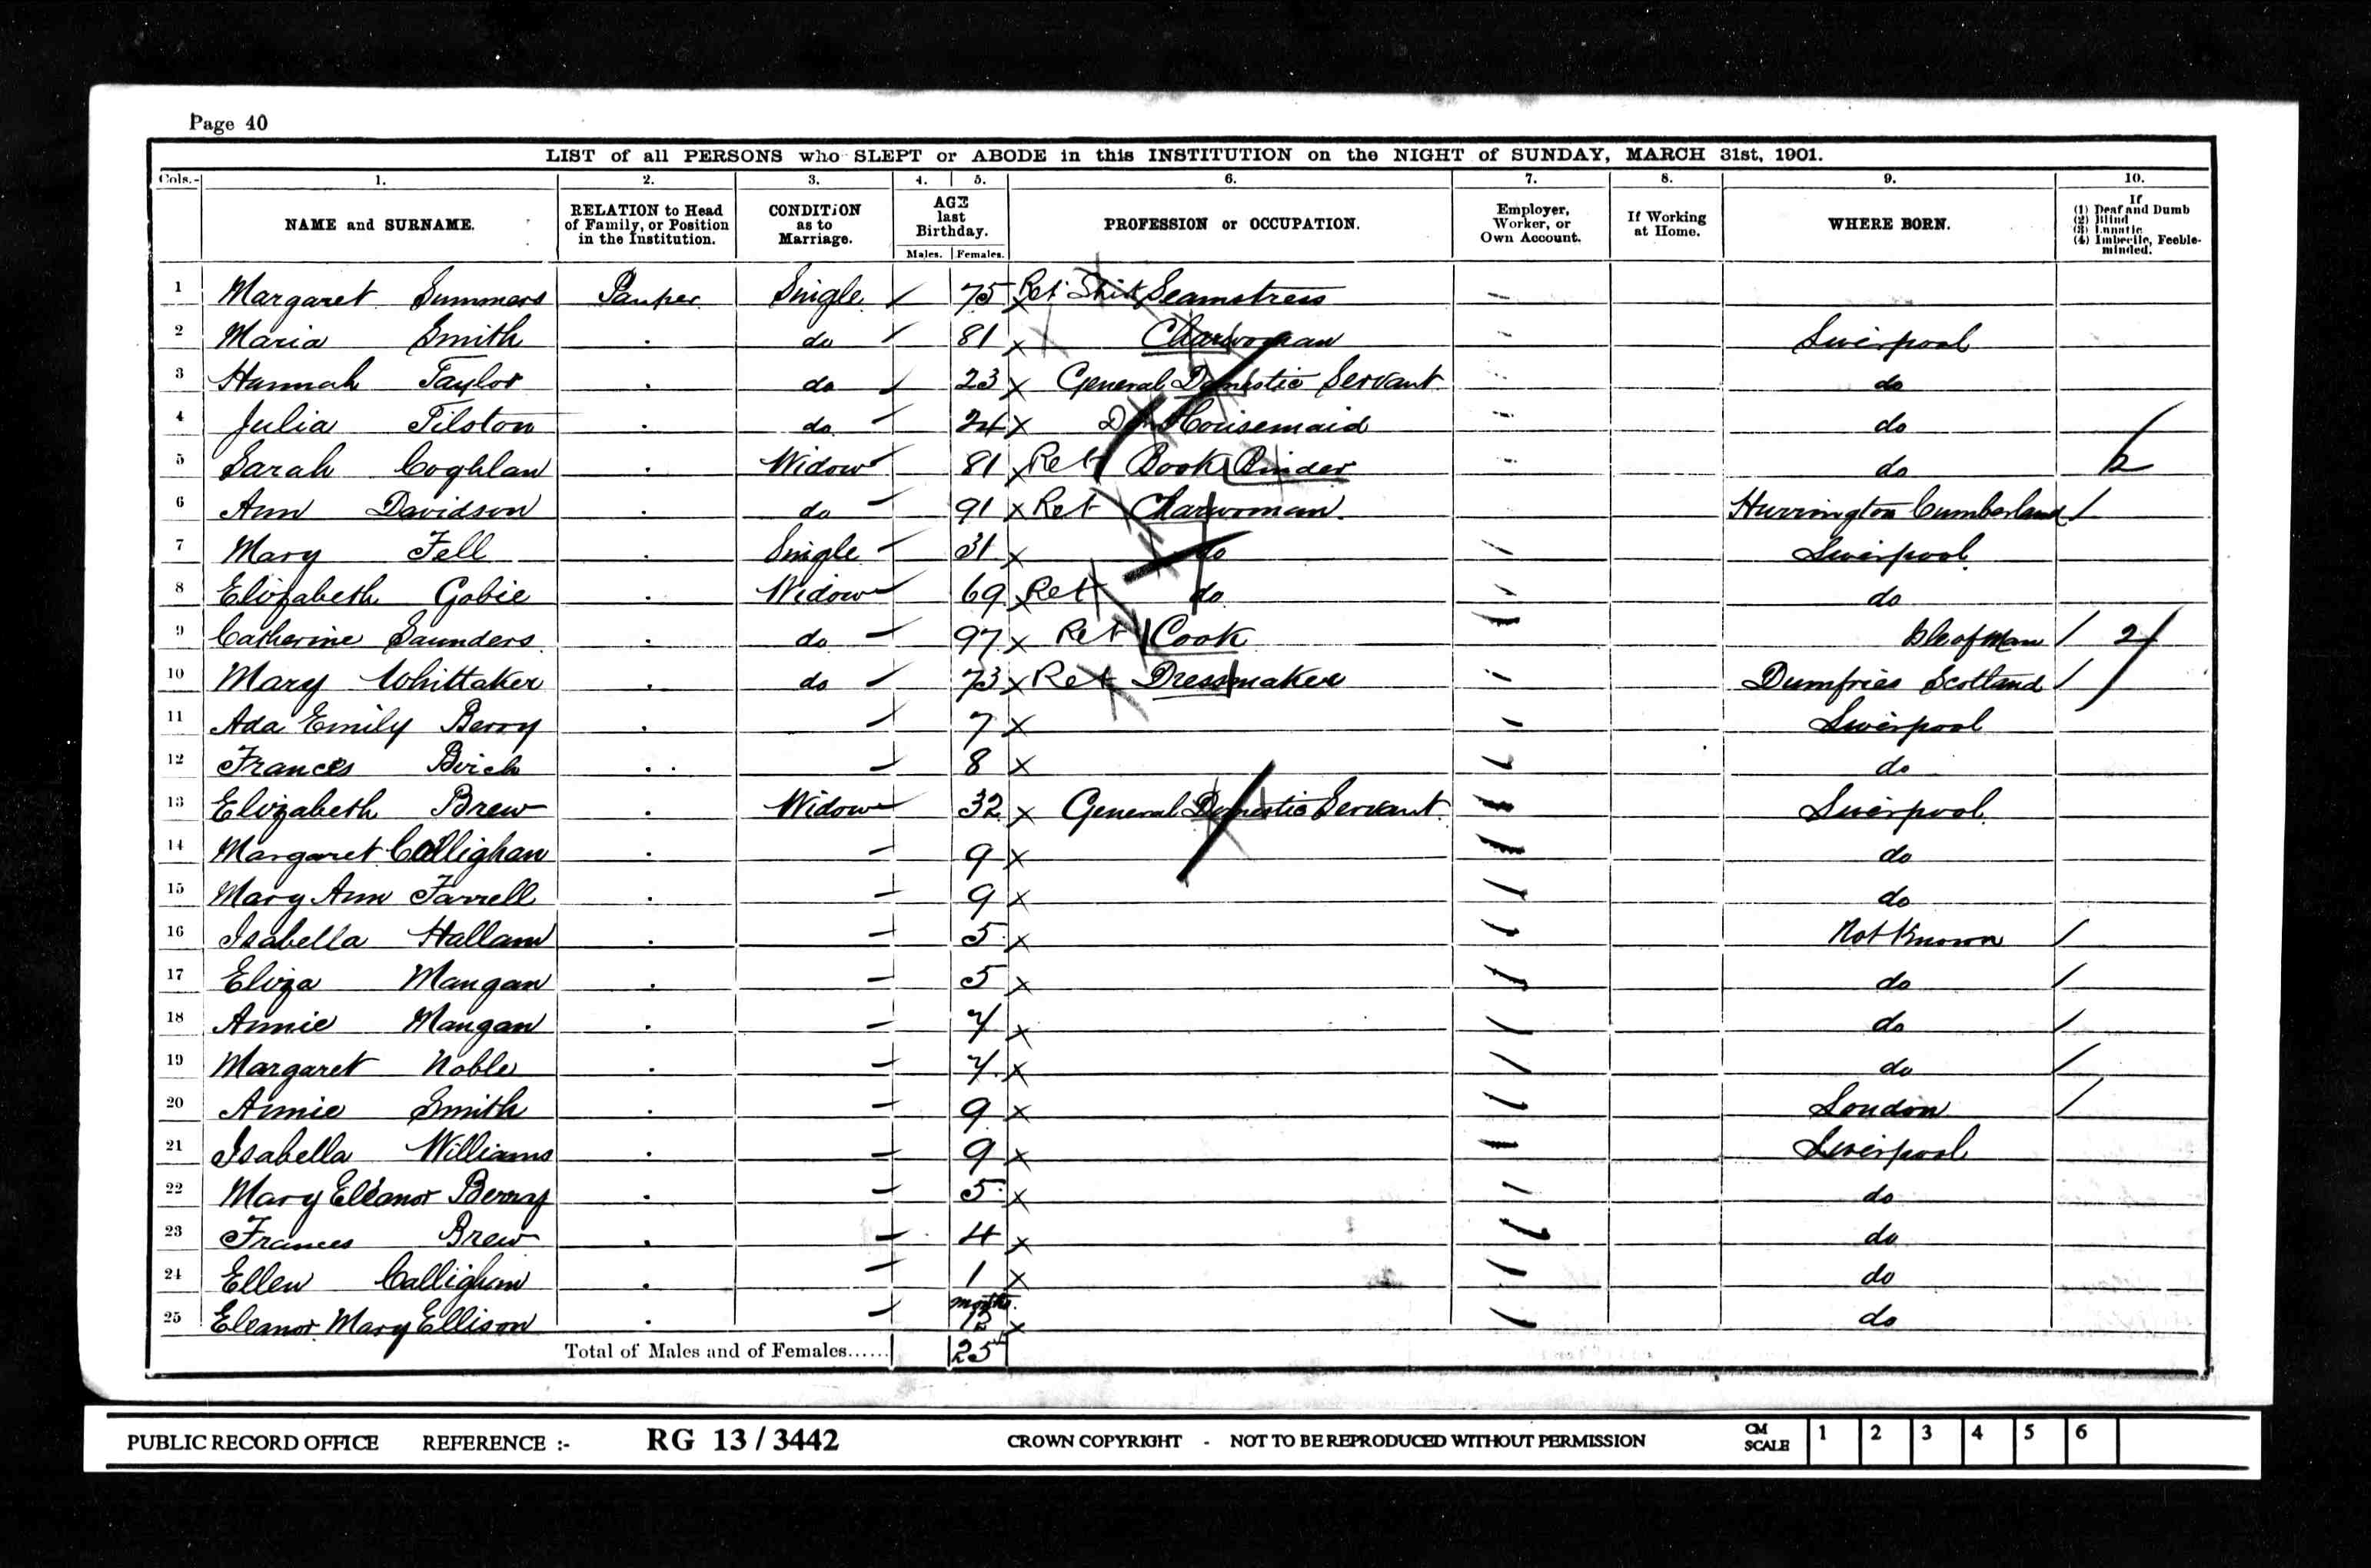 Page 40
LIST of all PERSONS who SLEPT or ABODE in this INSTITUTION on the NIGHT of SUNDAY, MARCH 31st, 1901.
Cols.- 1. 2. 3. 4. 5. 6. 7. 8. 9. 10.
NAME and SURNAME. RELATION to Head of Family, or Position in the Institution. CONDITION as to Marriage. AGE last Birthday. Males. Females. PROFESSION or OCCUPATION. Employer, Worker, or Own Account. If Working at Home. WHERE BORN. If (1) Deaf and Dumb (2) Blind (3) Lunatic (4) Imbecile, Feeble-minded.
1 Margaret Summers Pauper Single 75 Ret Seamstress
2 Maria Smith do 81 Charwoman Liverpool
3 Hannah Taylor do 23 General Domestic Servant do
4 Julia Tilston do 24 Do Housemaid do
5 Sarah Coghlan Widow 81 Ret Book Binder do 2
6 Ann Davidson do 91 Ret Charwoman Hurrington Cumberland
7 Mary Fell Single 31 do Liverpool
8 Elizabeth Gobie Widow 69 Ret do do
9 Catherine Saunders do 97 Ret Cook Isle of Man 2
10 Mary Whittaker do 73 Ret Dressmaker Dumfries Scotland
11 Ada Emily Berry 7 Liverpool
12 Frances Birch 8 do
13 Elizabeth Brew Widow 32 General Domestic Servant Liverpool
14 Margaret Callighan 9 do
15 Mary Ann Farrell 9 do
16 Isabella Hallam 5 Not Known
17 Eliza Mangan 5 do
18 Annie Mangan 7 do
19 Margaret Noble 7 do
20 Annie Smith 9 London
21 Isabella Williams 9 Liverpool
22 Mary Eleanor Berry 5 do
23 Frances Brew 4 do
24 Ellen Callighan 1 do
25 Eleanor Mary Ellison months do
Total of Males and of Females...... 25
PUBLIC RECORD OFFICE REFERENCE :- RG 13 / 3442 CROWN COPYRIGHT - NOT TO BE REPRODUCED WITHOUT PERMISSION CM SCALE 1 2 3 4 5 6